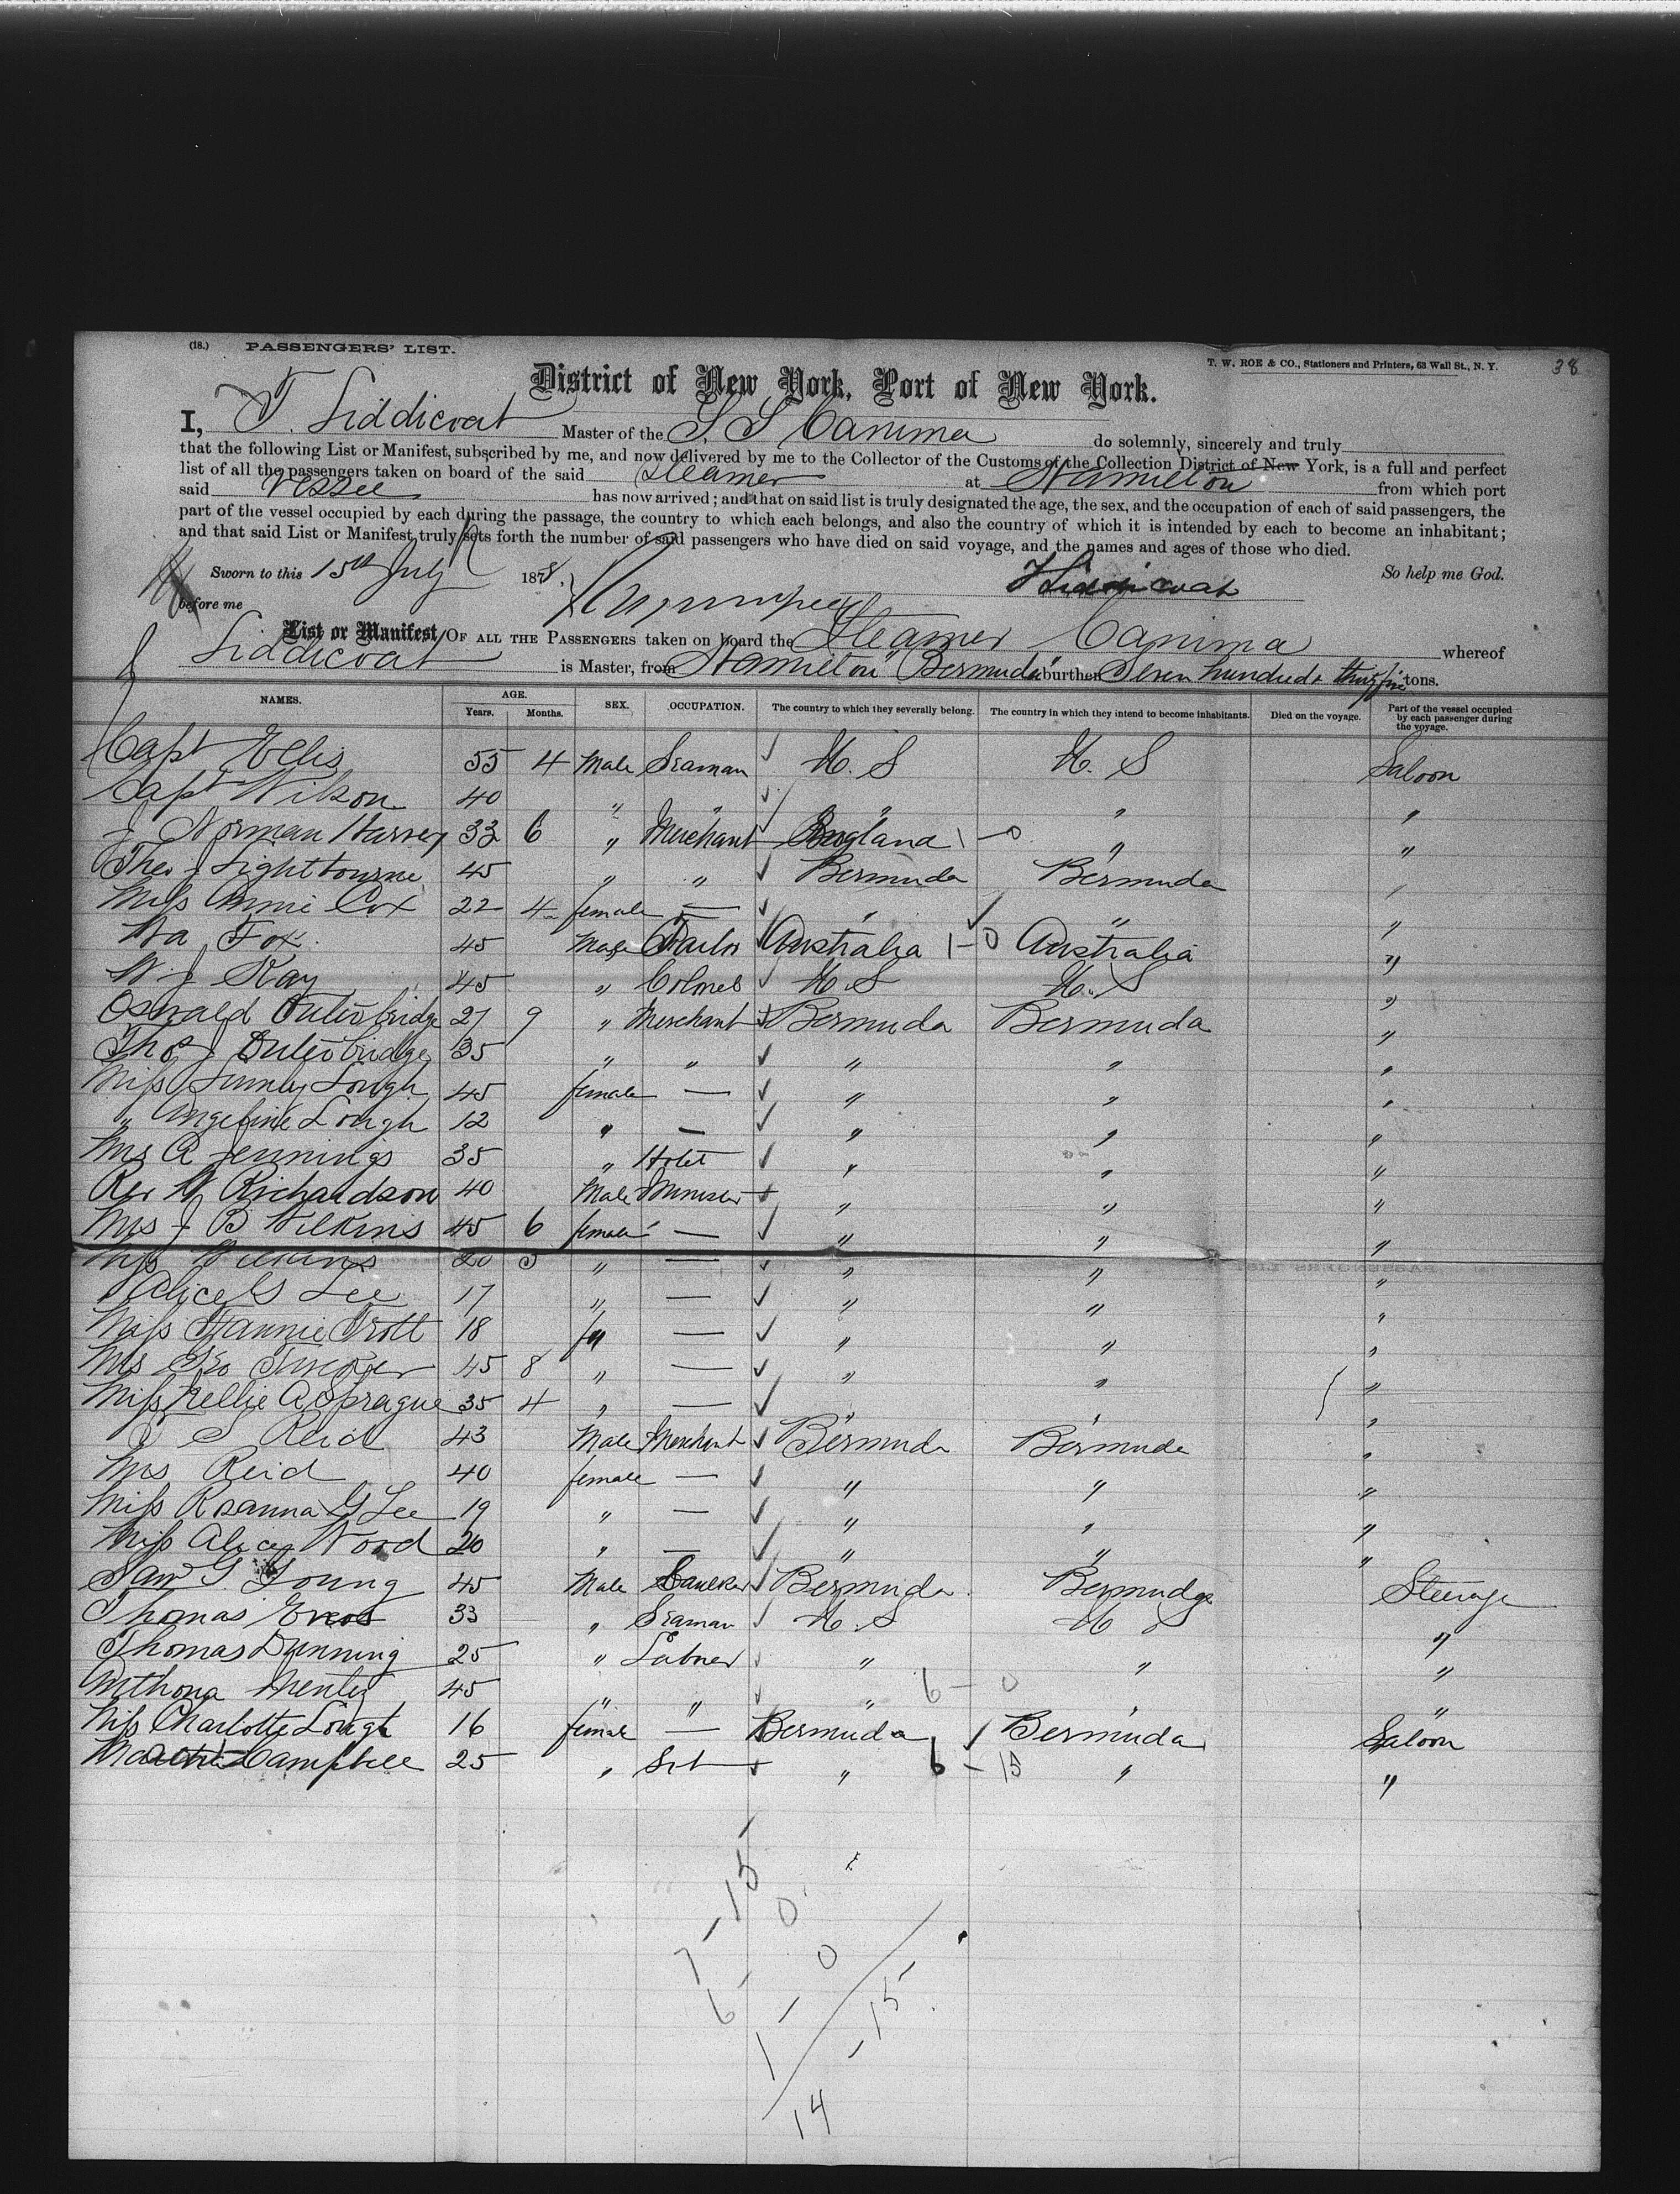 (18.) PASSENGERS' LIST.
T. W. ROE & CO., Stationers and Printers, 63 Wall St., N. Y. 38
District of New York, Port of New York.
I, T. Liddicoat Master of the S. S Canima do solemnly, sincerely and truly
that the following List or Manifest, subscribed by me, and now delivered by me to the Collector of the Customs of the Collection District of New York, is a full and perfect
list of all the passengers taken on board of the said Steamer at Hamilton from which port
said Vessel has now arrived; and that on said list is truly designated the age, the sex, and the occupation of each of said passengers, the
part of the vessel occupied by each during the passage, the country to which each belongs, and also the country of which it is intended by each to become an inhabitant;
and that said List or Manifest truly sets forth the number of said passengers who have died on said voyage, and the names and ages of those who died.
Sworn to this 15th July 1878. So help me God.
before me T Liddicoat
List or Manifest OF ALL THE PASSENGERS taken on board the Steamer Canima whereof
Liddicoat is Master, from Hamilton Bermuda burthen Seven hundred thirty five tons.
NAMES. AGE. Years. Months. SEX. OCCUPATION. The country to which they severally belong. The country in which they intend to become inhabitants. Died on the voyage. Part of the vessel occupied by each passenger during the voyage.
Capt Ellis 55 4 Male Seaman U. S U. S Saloon
Capt Wilson 40 " " " " "
J Norman Harvey 33 6 " Merchant England 1-0 " "
Theo J Lightbourne 45 " " Bermuda Bermuda "
Miss Annie Cox 22 4 female — " " "
Fox 45 Male Australia 1-0 Australia "
W J Kay 45 " Colonel U. S U. S "
Oswald Outerbridge 27 9 " Merchant Bermuda Bermuda "
Thos J Outerbridge 35 " " " " "
Miss Lough 45 female — " " "
" Angeline Lough 12 " — " " "
Mrs A Jennings 35 " " " "
Rev W Richardson 40 Male Minister " " "
Mrs J B Wilkins 45 6 female — " " "
Miss Wilkins 20 5 " — " " "
Alice G Lee 17 " — " " "
Miss Fannie Trott 18 " — " " "
Mrs Geo Tucker 45 8 " — " " "
Miss Nellie A Sprague 35 4 " — " " "
S Reid 43 Male Merchant Bermuda Bermuda "
Mrs Reid 40 female — " " "
Miss Rosanna G Lee 19 " — " " "
Miss Alice Wood 20 " — " " "
Sam G Young 45 Male Caulker Bermuda Bermuda Steerage
Thomas 33 " Seaman U. S U S "
Thomas Dunning 25 " Labner " " "
45 " " " 6-0 "
Miss Charlotte Lough 16 female — Bermuda Bermuda Saloon
Campbell 25 " " 6-15 " "
7-15
6-0
1-0
14-15